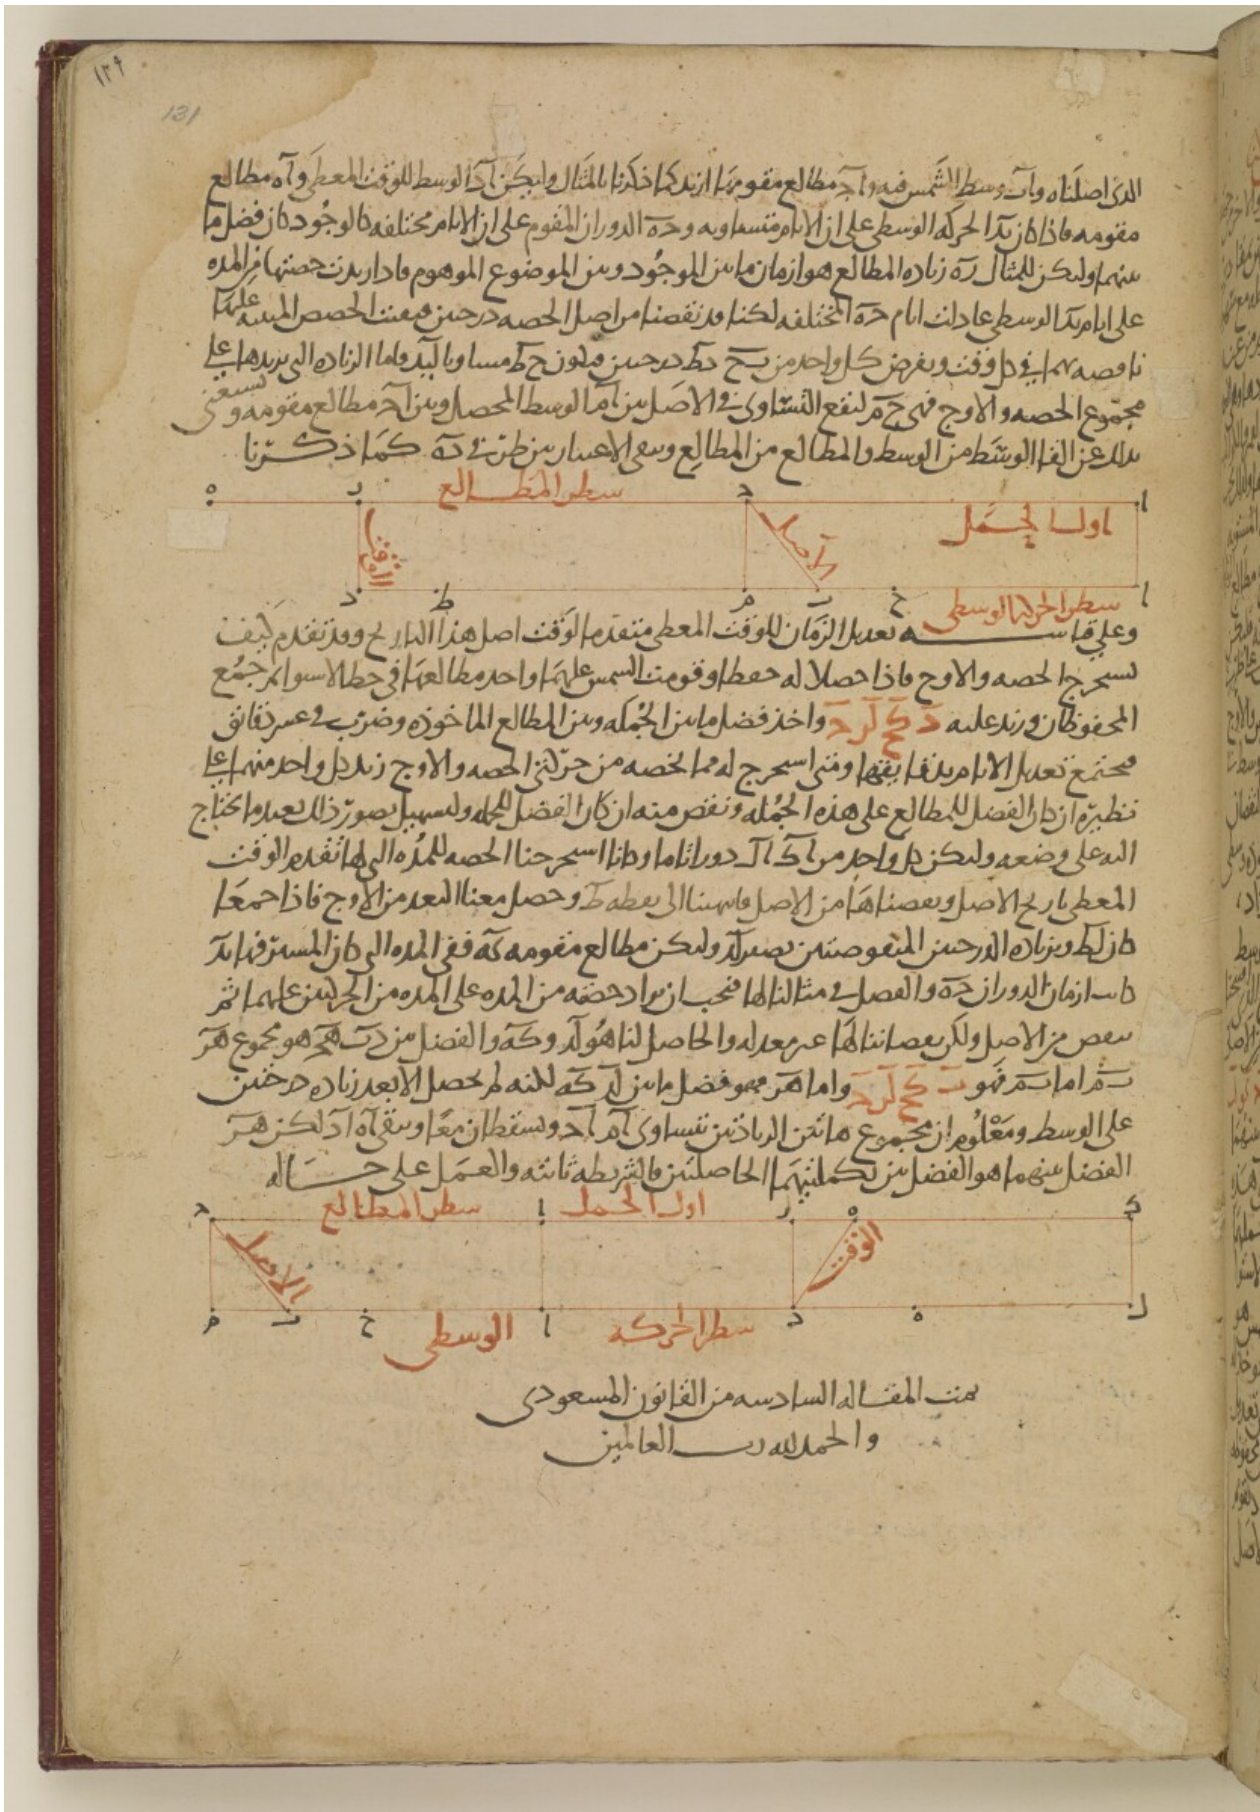 ١٢٩
131
الذى اصلناه واب وسط الشمس فيه واجـ مطالع مقومها ازيد كما ذكرنا بالمثال وليكن اد الوسط للوقت المعطى واه مطالع
مقومه فاذا كان بد الحركه الوسطى على ان الايام متساويه وجه الدوران المقوم على ان الايام مختلفه كالوجود كان فضل ما
بينهما وليكن للمثال ره زياده المطالع هو ازمان ما بين الموجود وبين الموضوع الموهوم فاذا زيدت حصتها فى المده
على ايام بد الوسطى عادلت ايام جه المختلفه لكنا قد نقصنا من اصل الحصه درجتين فبقيت الحصص المبنيه عليها
ناقصه بهما فى كل وقت ونفرض كل واحد من بح دط درجتين فيكون حط مساويا لبد واما الزياده التى نزيدها على
مجموع الحصه والاوج فهى حم ليقع التساوى فى الاصل بين ام الوسط المحصل وبين اجـ مطالع مقومه ونستغنى
بذلك عن القا الوسط من الوسط والمطالع من المطالع وبقى الاعتبار بين طر فى ده كما ذكرنا
ه ر سطر المطالع جـ ا
اول الحمل الاصل الوقت
د ط م ب ح سطر الحركه الوسطى ا
وعلى قياسه تعديل الزمان للوقت المعطى متقدما الوقت اصل هذا التاريخ وقد تقدم كيف
نستخرج الحصه والاوج فاذا حصلا له حفظا وقومت الشمس عليهما واخذ مطالعها فى خط الاستوا ثم جمع
المحفوظان وزيد عليه واخذ فضل ما بين الجمله وبين المطالع الماخوذه وضرب فى عشر دقائق
فيجتمع تعديل الايام بدقايقها ومتى استخرج له ما يخصه من حركتى الحصه والاوج زيد كل واحد منهما على
نظيره ان كان الفضل للمطالع على هذه الجمله ونقص منه ان كان الفضل للجمله ولتسهيل تصور ذلك نعيد ما نحتاج
اليه على وضعه وليكن كل واحد من اك ال دورا تاما وكانا استخرجنا الحصه للمده التى لها تقدم الوقت
المعطى تاريخ الاصل ونقصناها من الاصل فانتهينا الى نقطه ط وحصل معنا البعد من الاوج فاذا جمعا
كان لط وبزياده الدرجتين المنقوصتين يصير لد وليكن مطالع مقومه كه ففى المده التى كان المسير فيها بد
كانت ازمان الدوران جه والفضل فى مثالنا لها فيجب ان يزاد حصته من المده على المده من الحركتين عليهما ثم
ننقص من الاصل ولكن نقصاننا لها غير معدله والحاصل لنا هو لد وكه والفضل بين دب هجـ هو مجموع هر
بم اما بم فهو واما هر فهو فضل ما بين لد كه لكنه لم يحصل الا بعد زياده درجتين
على الوسط ومعلوم ان بمجموع هاتين الزيادتين تتساوى ام اجـ ويسقطان معا ويبقى اه اد لكن هر
الفضل بينهما هو الفضل بين تكملتيهما الحاصلتين فالشريطه ثابته والعمل على حاله
جـ سطر المطالع ا اول الحمل ر ه ك
الاصل الوقت
م ب ح الوسطى ا سطر الحركه د ه ل
تمت المقاله السادسه من القانون المسعودى
والحمد لله رب العالمين